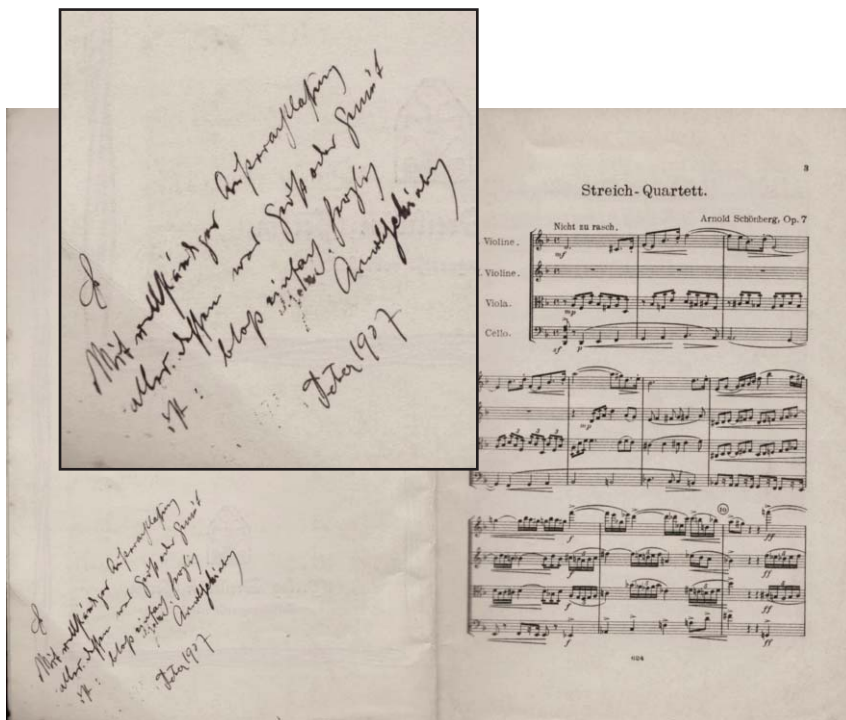 Mit vollständger Außerachtlassung
alles dessen was Groß oder Gemüt
ist: bloß einfach herzlich
Arnold Schönberg
Feber 1907
Mit vollständger Außerachtlassung
alles dessen was Groß oder Gemüt
ist: bloß einfach herzlich
Arnold Schönberg
Feber 1907
3
Streich-Quartett.
Arnold Schönberg, Op. 7
Nicht zu rasch.
Violine.
mf
Violine.
Viola.
mp
Cello.
sf p
mp
10
f ff
f ff
f ff
f ff
624